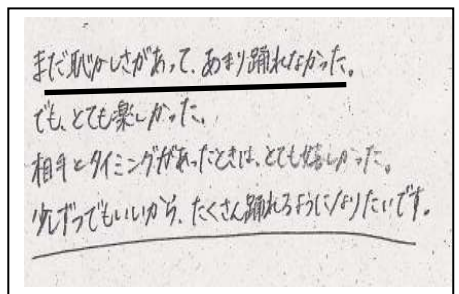 まだ恥ずかしさがあって、あまり踊れなかった。
でも、とても楽しかった。
相手とタイミングがあったときは、とても嬉しかった。
少しずつでもいいから、たくさん踊れるようになりたいです。